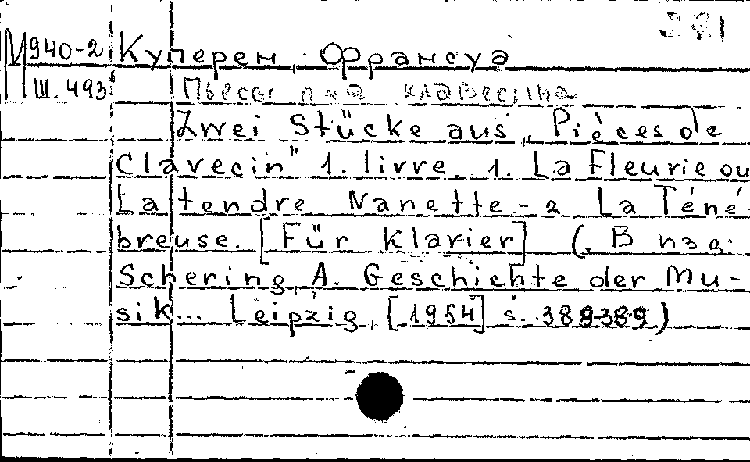 381
М 940-2 Куперен, Франсуа
Ш. 493 Пьесы для клавесина
Zwei Stücke aus „Pièces de
Clavecin" 1. livre. 1. La Fleurie ou
La tendre Nanette - 2 La Téné-
breuse. [Für Klavier] (. В изд.
Schering, A. Geschichte der Mu-
sik... Leipzig, [1954] s. 388-389)